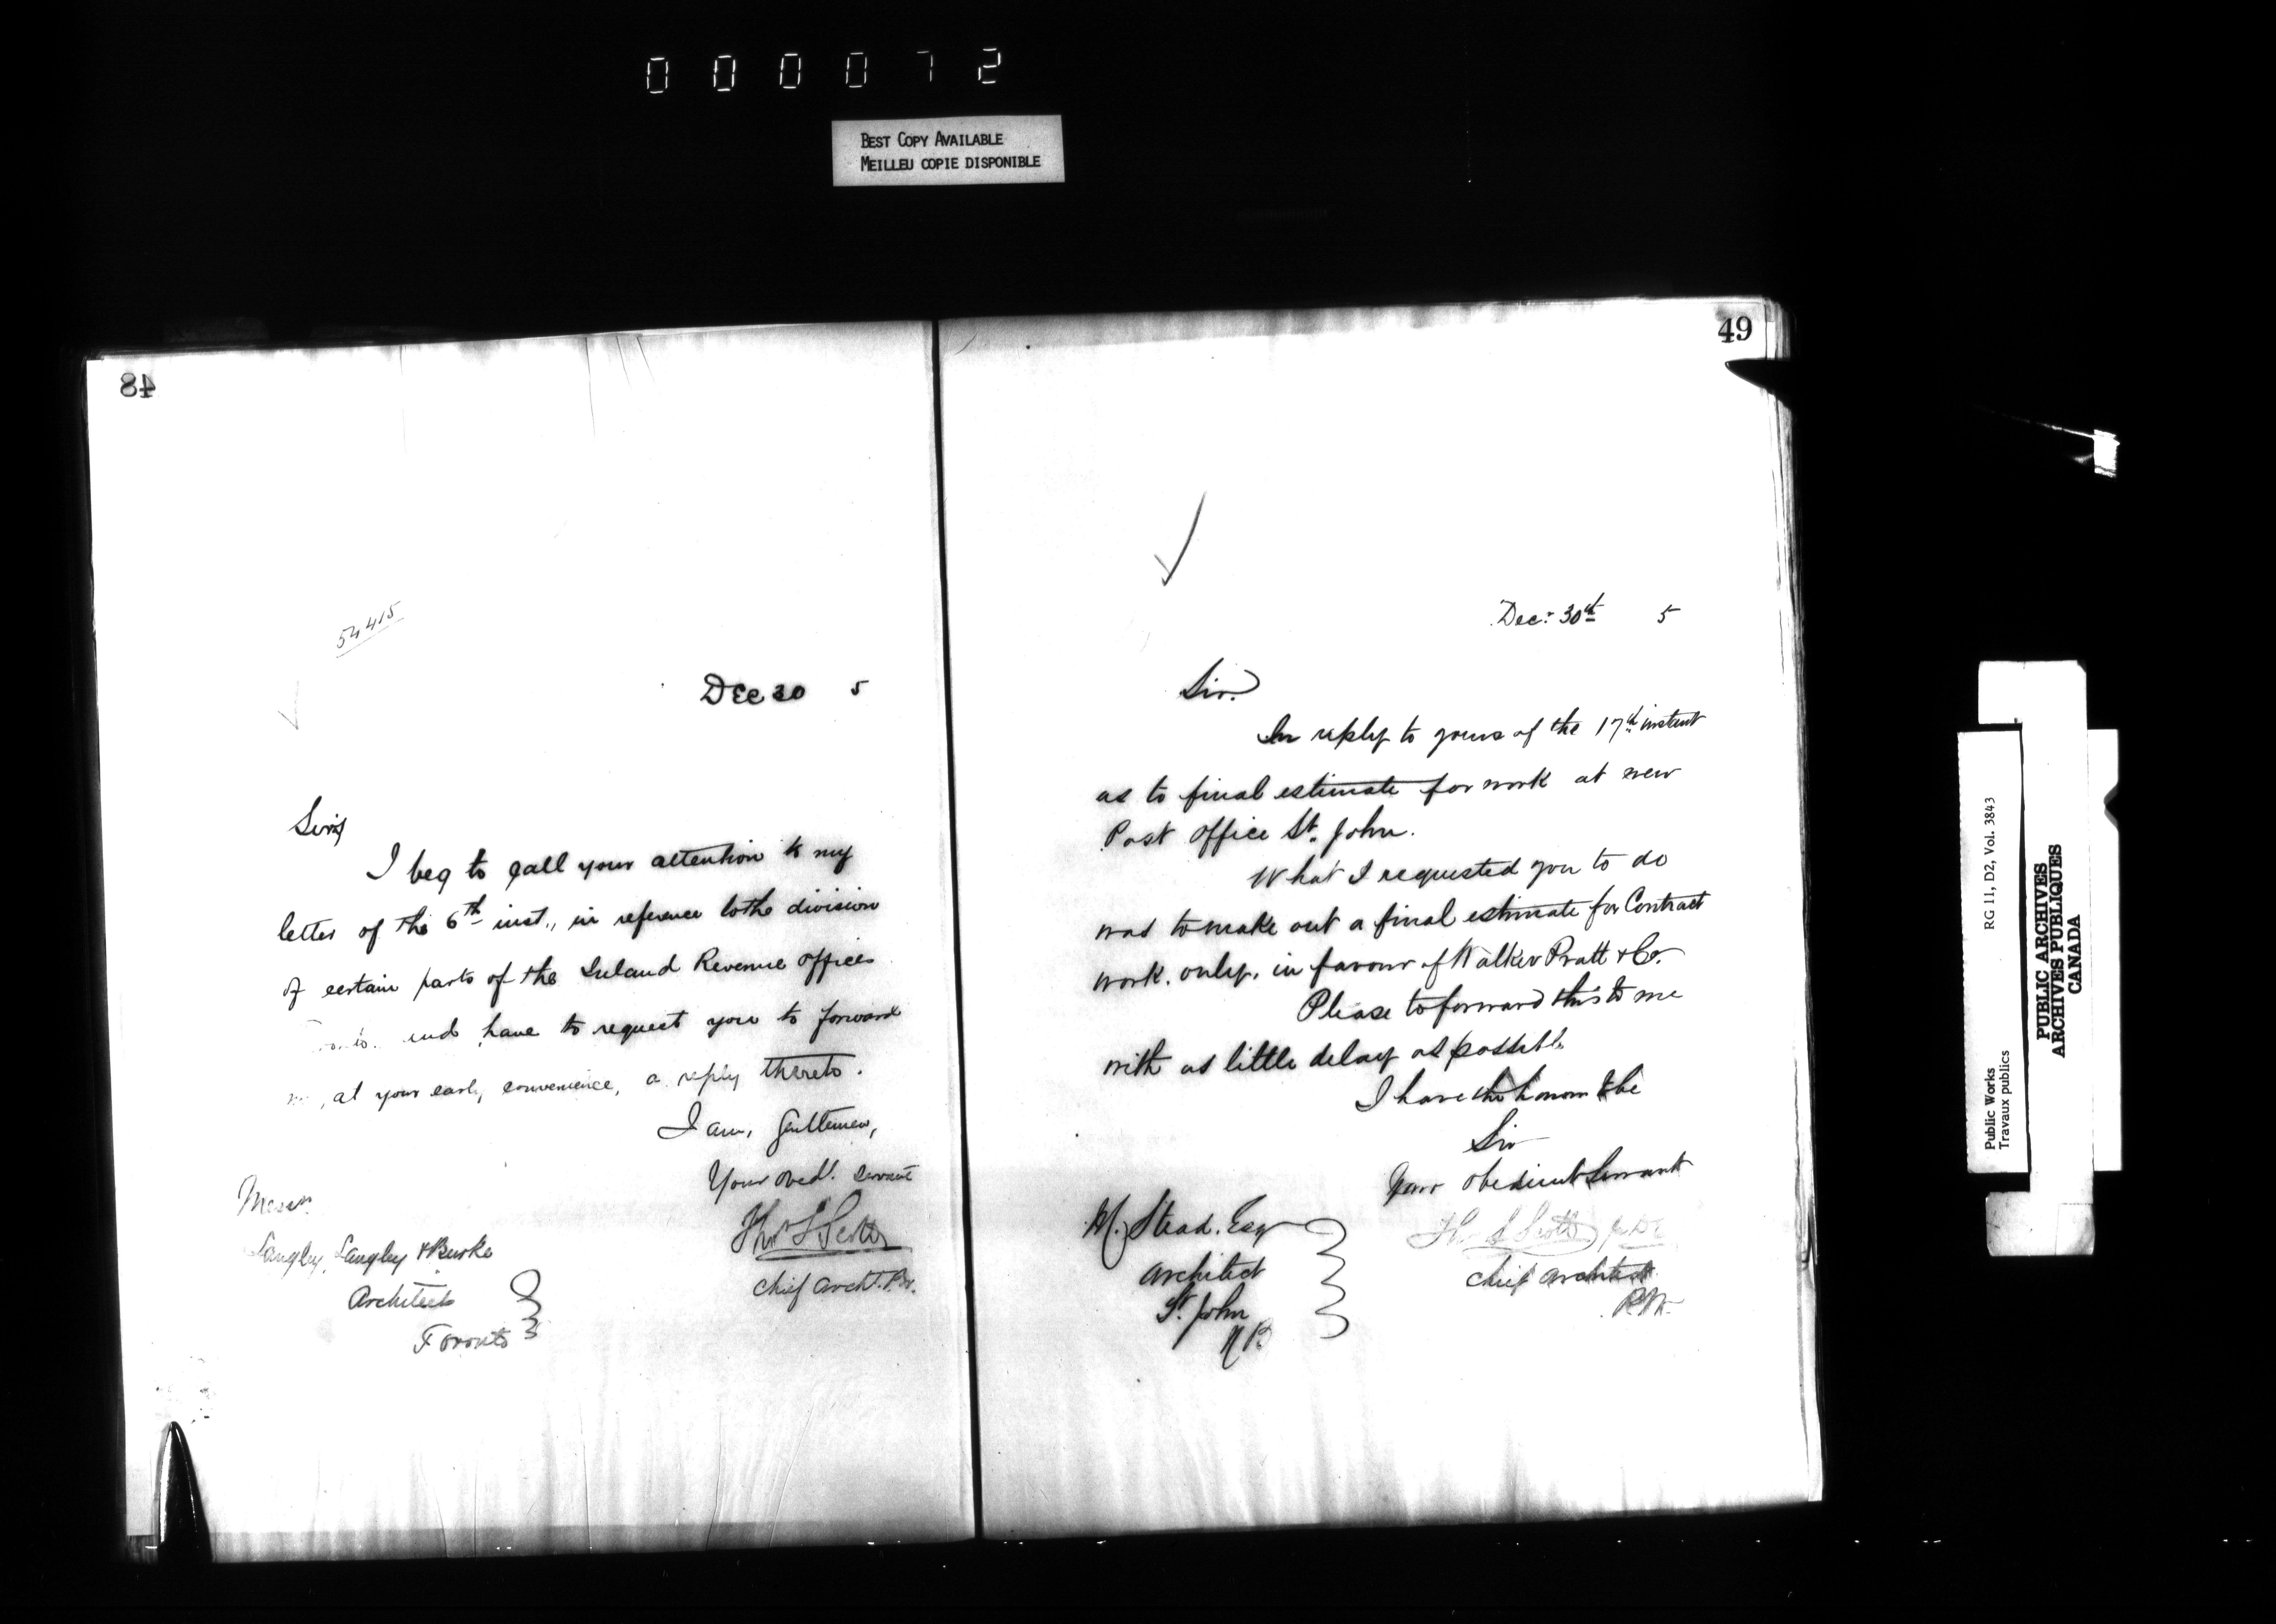 000072
BEST COPY AVAILABLE
MEILLEU COPIE DISPONIBLE
48
54415
Dec 30 5
Sirs
I beg to call your attention to my
letter of the 6th inst., in reference to the division
of certain parts of the Inland Revenue offices
and have to request you to forward
at your early convenience, a reply thereto.
I am, Gentlemen,
Your obedt. servant
Thos S Scott
Chief Archt. P.W.
Messrs
Langley, Langley & Burke
Architects
Toronto
49
Dec: 30th 5
Sir.
In reply to yours of the 17th instant
as to final estimate for work at new
Post office St. John.
What I requested you to do
was to make out a final estimate for Contract
work. only. in favour of Walker Pratt & Co.
Please to forward this to me
with as little delay as possible
I have the honour to be
Sir
Your obedient Servant
Thos S Scott
Chief Architect
P.W.
M. Stead. Esq
Architect
St. John
N B
Public Works RG 11, D2, Vol. 3843
Travaux publics
PUBLIC ARCHIVES
ARCHIVES PUBLIQUES
CANADA